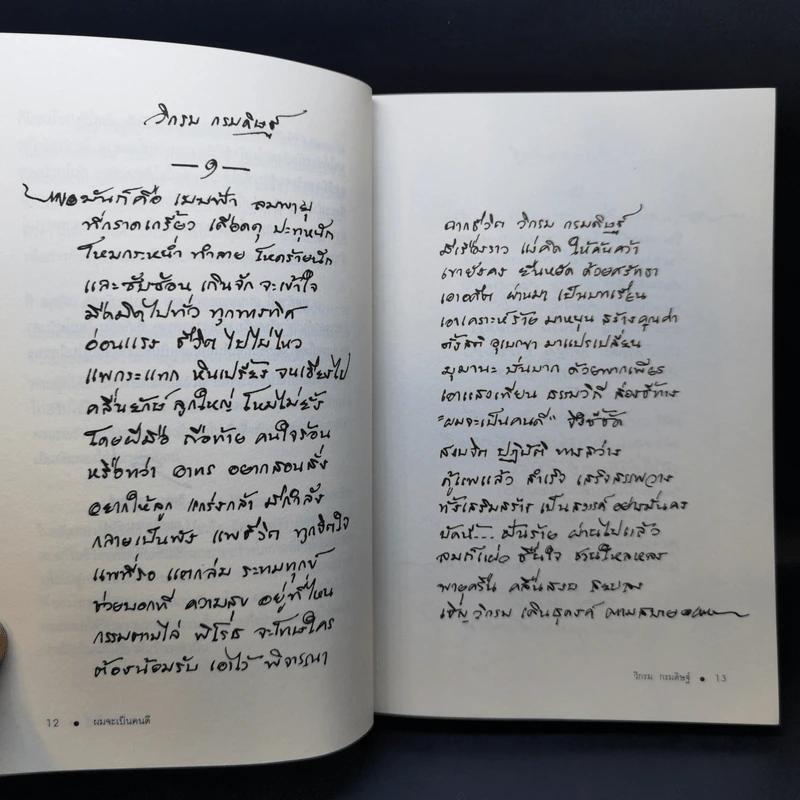 วิกรม กรมดิษฐ์
— ๑ —
คือ เมฆฟ้า ลมพายุ
ที่กราดเกรี้ยว เดือดดุ ปะทุหนัก
โหมกระหน่ำ ทำลาย โหดร้ายนัก
และซับซ้อน เกินจัก จะเข้าใจ
มืดมิดไปทั่ว ทุกทิศ
อ่อนแรง ชีวิต ไปไม่ไหว
แพกระแทก หินเปรี้ยง จนเอียงไป
คลื่นยักษ์ ลูกใหญ่ โหมไม่ยั้ง
โดยฝีมือ ถือท้าย คนใจร้อน
หรือทว่า อาทร อยากสอนสั่ง
อยากให้ลูก แกร่งกล้า มีกำลัง
กลายเป็นพัง แพชีวิต ทุกจิตใจ
แพที่รอ แตกล่ม ระทมทุกข์
ช่วยบอกที ความสุข อยู่ที่ไหน
กรรมตามไล่ พิโรธ จะโทษใคร
ต้องน้อมรับ เอาไว้ พิจารณา
12 • ผมจะเป็นคนดี
จากชีวิต วิกรม กรมดิษฐ์
มีเรื่องราว แง่คิด ให้ค้นคว้า
เขายังคง ยืนหยัด ด้วยศรัทธา
เอาอดีต ผ่านมา เป็นบทเรียน
เอาเคราะห์ร้าย มาหนุน สร้างคุณค่า
ตั้งสติ อุเบกขา มาแปรเปลี่ยน
มุมานะ บั่นบาก ด้วยพากเพียร
เอาแสงเทียน ธรรมวิถี ส่องชี้ทาง
"ผมจะเป็นคนดี" ชี้ชัด
สงบจิต ปฏิบัติ ทางสว่าง
กู้แพแล้ว สำเร็จ เสร็จสรรพวาง
ทั้งเสริมสร้าง เป็นสวรรค์ อย่างมั่นคง
บัดนี้... ฝันร้าย ผ่านไปแล้ว
ลมก็แผ่ว ชื่นใจ
คลื่นสงบ
เชิญ วิกรม
วิกรม กรมดิษฐ์ • 13